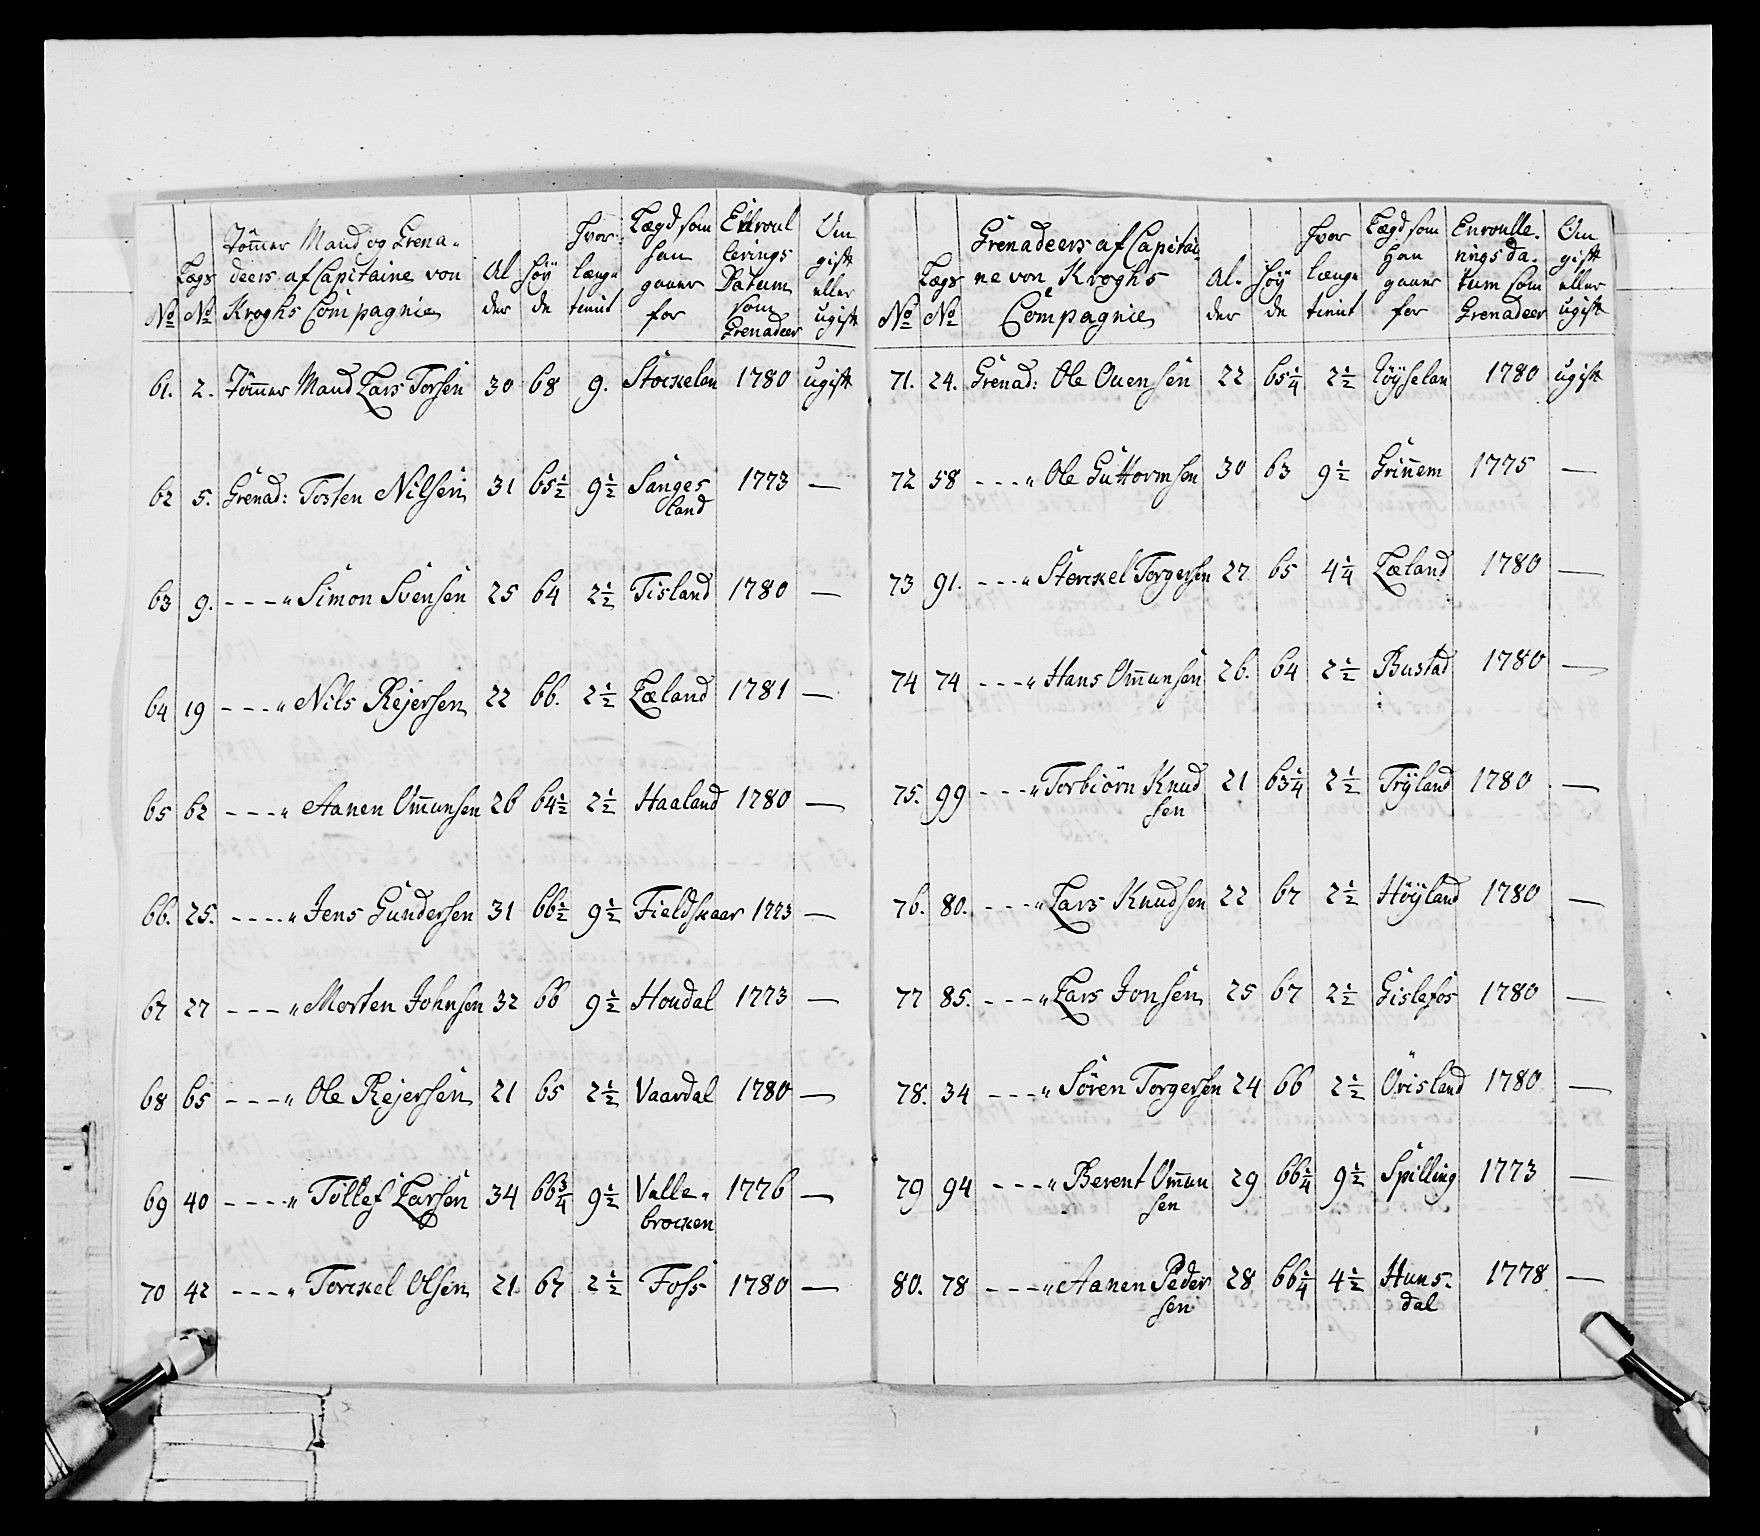 No
Lægs No
Tömer Mand og Grena-
deers af Capitaine von
Kroghs Compagnie
Al
der
Höÿ
de
Hvor
længe
tient
Lægd som
han
gaaer
for
Enroul
lerings
Datum
som
Grenadeer
Om
gift
eller
ugift
61. 2. Tömer Mand Lars Torsen 30 68 9. Stockelan 1780 ugift
62 5. Grenad: Tosten Nilsen 31 65½ 9½ Sanges 1773 —
land
63 9. - - - „ Simon Svensen 25 64 2½ Tisland 1780 —
64 19 - - - „ Nils Rejersen 22 66. 2½ Læland 1781 —
65 62 - - - „ Aanen Omunsen 26 64½ 2½ Haaland 1780 —
66. 25. - - - - „ Jens Gundersen 31 66½ 9½ Fieldskaar 1773 —
67 27 - - - „ Morten Johnsen 32 66 9½ Houdal 1773 —
68 65 - - - - „ Ole Rejersen 21 65 2½ Vaardal 1780 —
69 40 - - - - „ Tollef Larsen 34 66¾ 9½ Valle- 1776 —
brocken
70 42 - - - „ Torckel Olsen 21 67 2½ Foss 1780 —
No
Lægs No
Grenadeers af Capitai-
ne von Kroghs
Compagnie
Al-
der
Höÿ
de
Hvor
længe
tient
Lægd som
Han
gaaer
for
Enroulle-
rings da-
tum som
Grenadeer
Om
gift
eller
ugift
71. 24. Grenad: Ole Ouensen 22 65¼ 2½ Höÿselan 1780 ugift
72 58 - - - „ Ole Guttormsen 30 63 9½ Grinem 1775 —
73 91. - - - - „ Sterckel Torgersen 27 65 4¼ Læland 1780 —
74 74 - - - - „ Hans Omunsen 26. 64 2½ Bustad 1780 —
75. 99 - - - „ Torbiörn Knud 21 63¼ 2½ Trÿland 1780 —
sen
76. 80. - - - - „ Lars Knudsen 22 67 2½ Höÿland 1780 —
77 85. - - - - „ Lars Jonsen 25 67 2½ Gislefos 1780 —
78. 34 - - - „ Sören Torgersen 24 66 2½ Örisland 1780 —
79 94 - - - - „ Berent Omun 29 66¼ 9½ Spilling 1773 —
sen
80. 78 - - - „ Aanen Peder 28 66¼ 4½ Huns- 1778 —
sen dal